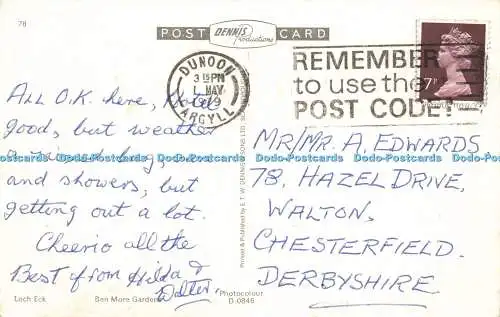 78
POST DENNIS Productions CARD
DUNOON
3 15 PM
1 MAY
ARGYLL
REMEMBER
to use the
POST CODE!
7P
All O.K. here, Hotel
good, but weather
and showers, but
getting out a lot.
Cheerio all the
Best from Hilda &
Walter.
MR/MR. A. EDWARDS
78, HAZEL DRIVE,
WALTON,
CHESTERFIELD.
DERBYSHIRE.
Printed & Published by E. T. W. DENNIS & SONS LTD.
Loch Eck
Ben More Gardens
Photocolour
D.0846
Dodo-Postcards Dodo-Postcards Dodo-Postcards Dodo-Postcards Dodo-Postcards Dodo-Postcards